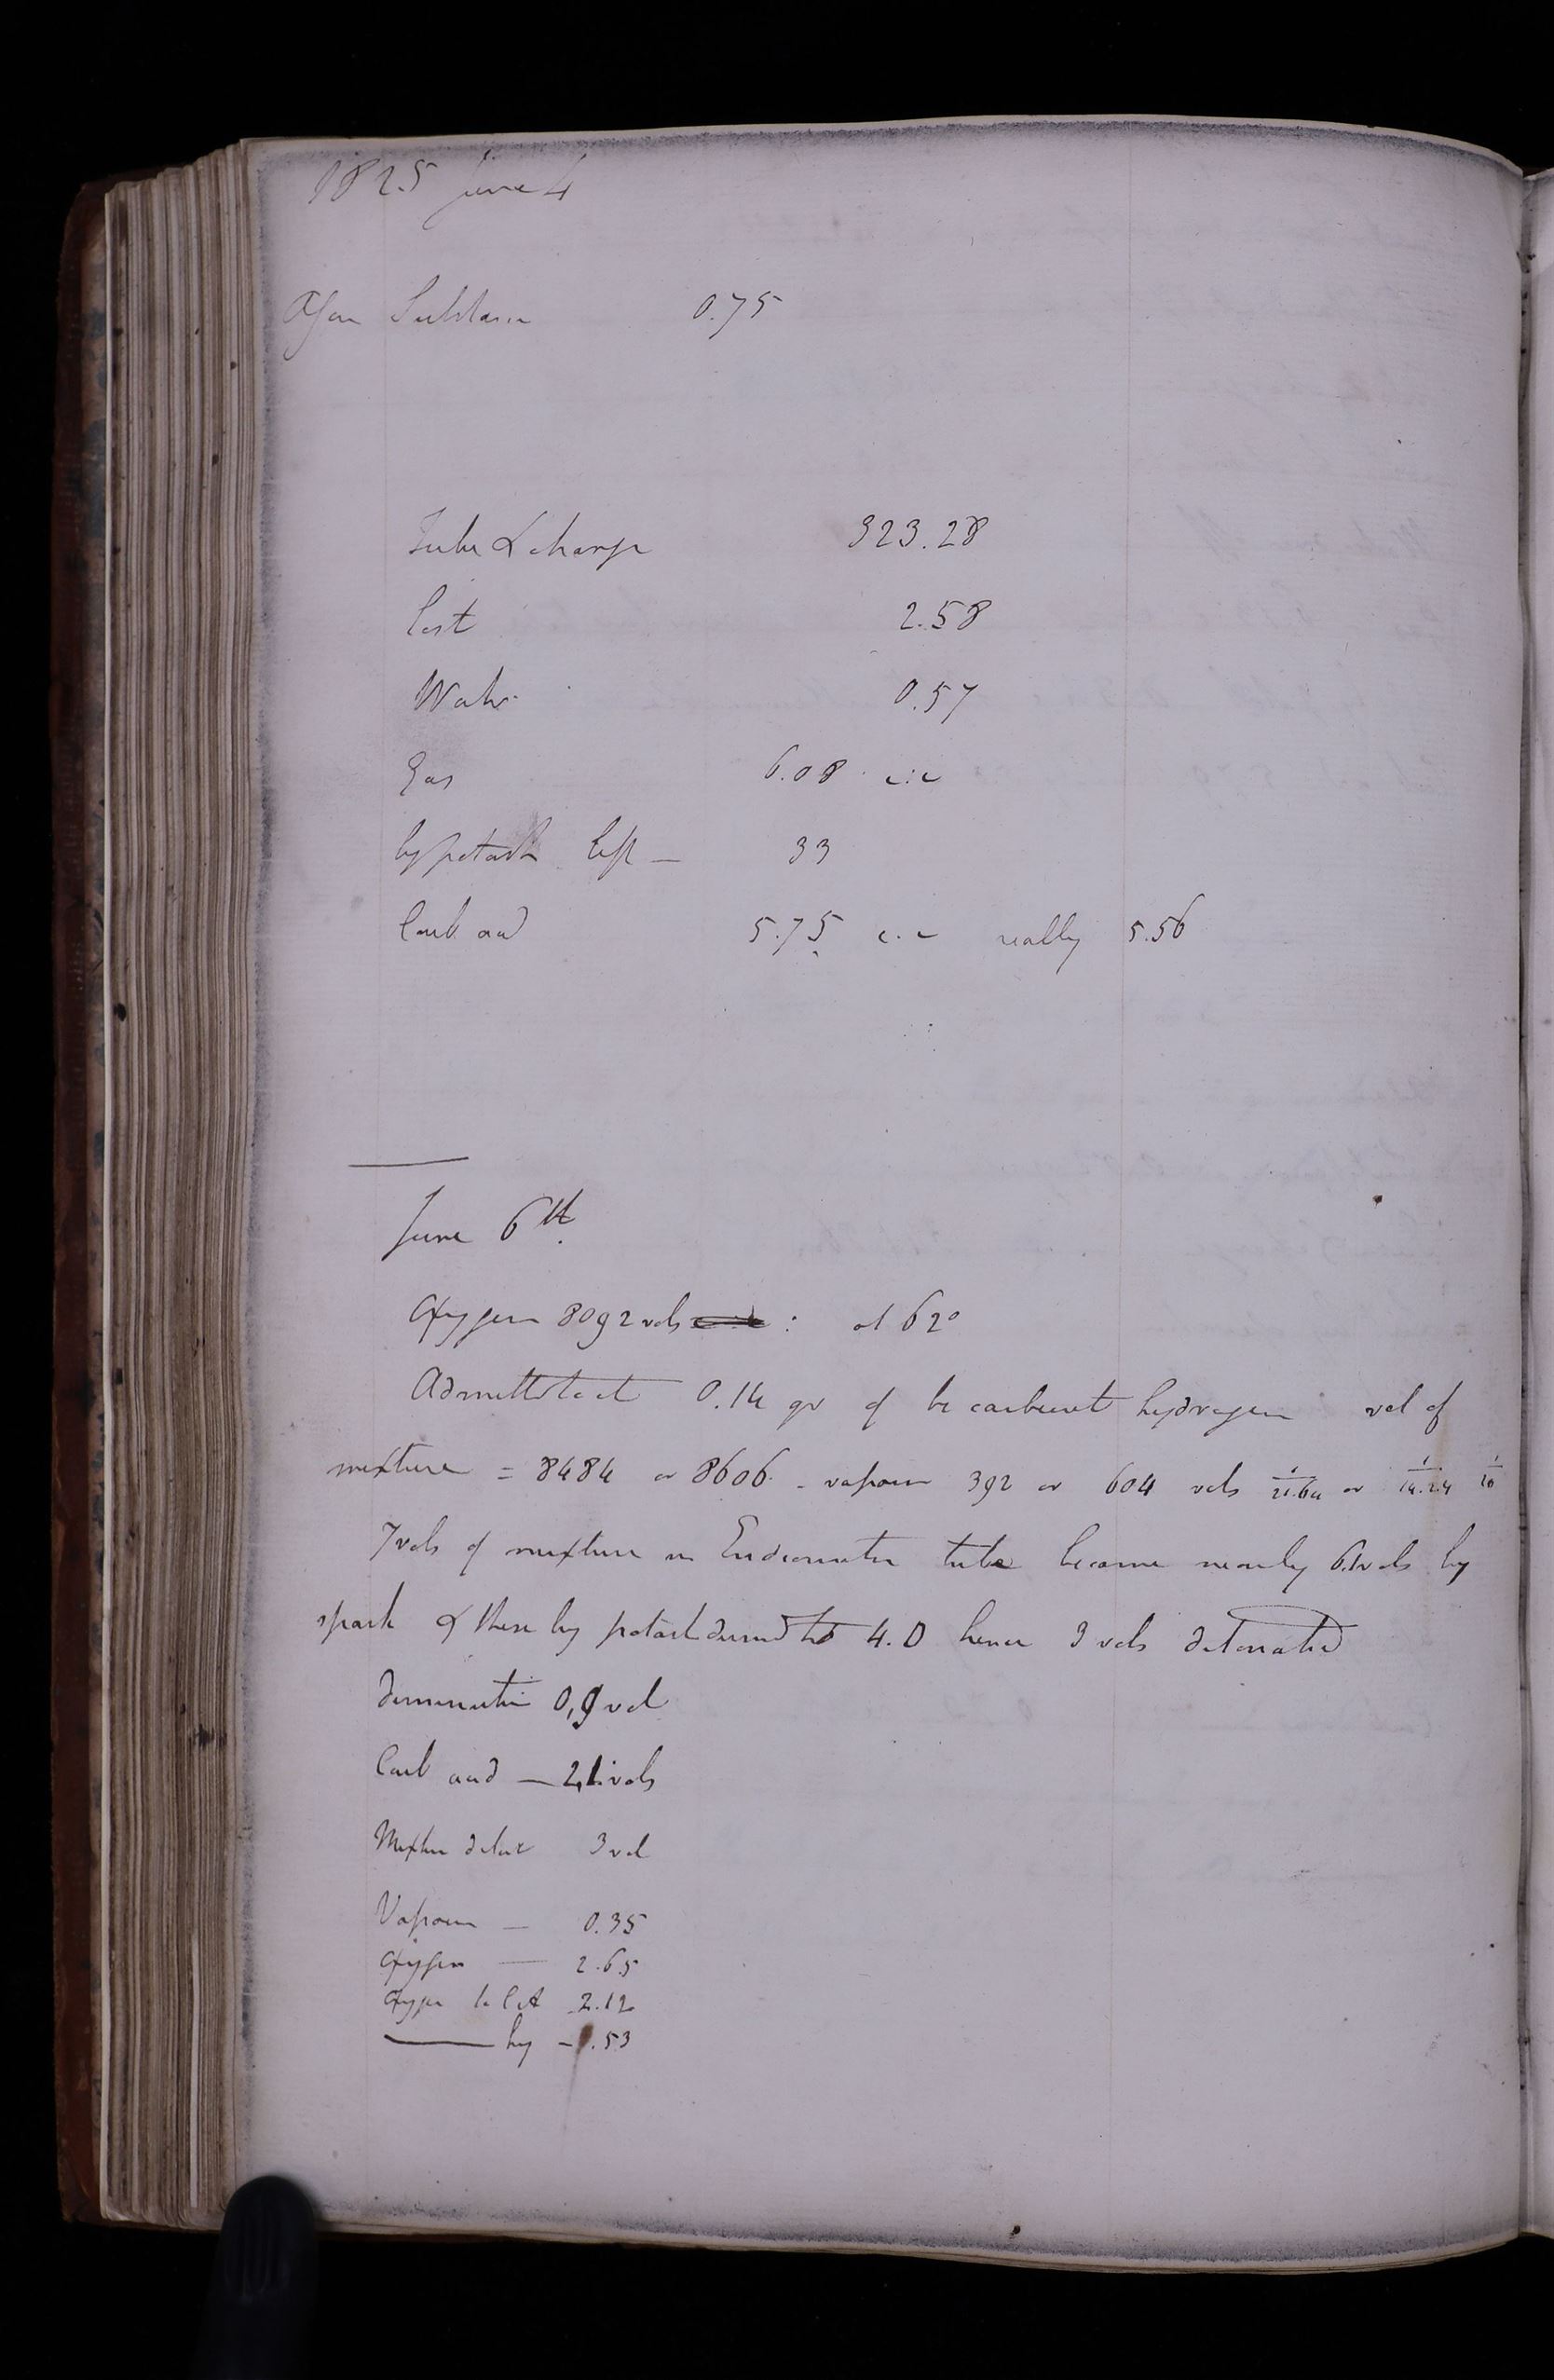 1825 June 4
Of Substance 0.75
Tube & charge 323.28
lost 2.58
Water 0.57
Gas 6.08 c.i.
by potash left — 33
Carb acid 5.75 c.i. really 5.56
June 6th.
Oxygen 8092 vols : at 62°
Admitted to it 0.14 gr of bi carburet hydrogen vol of
mixture = 8484 or 8606 - vapour 392 or 604 vols 1/21.64 or 1/14.24 1/10
7 vols of mixture in Eudiometer tube became nearly 6.1 vols by
spark & these by potash dimd to 4.0 hence 3 vols detonated
diminution 0,9 vol
Carb acid — 2,1 vols
Mixture detond 3 vol
Vapour — 0.35
Oxygen — 2.65
Oxygen to C A 2.12
——— hy - 0.53